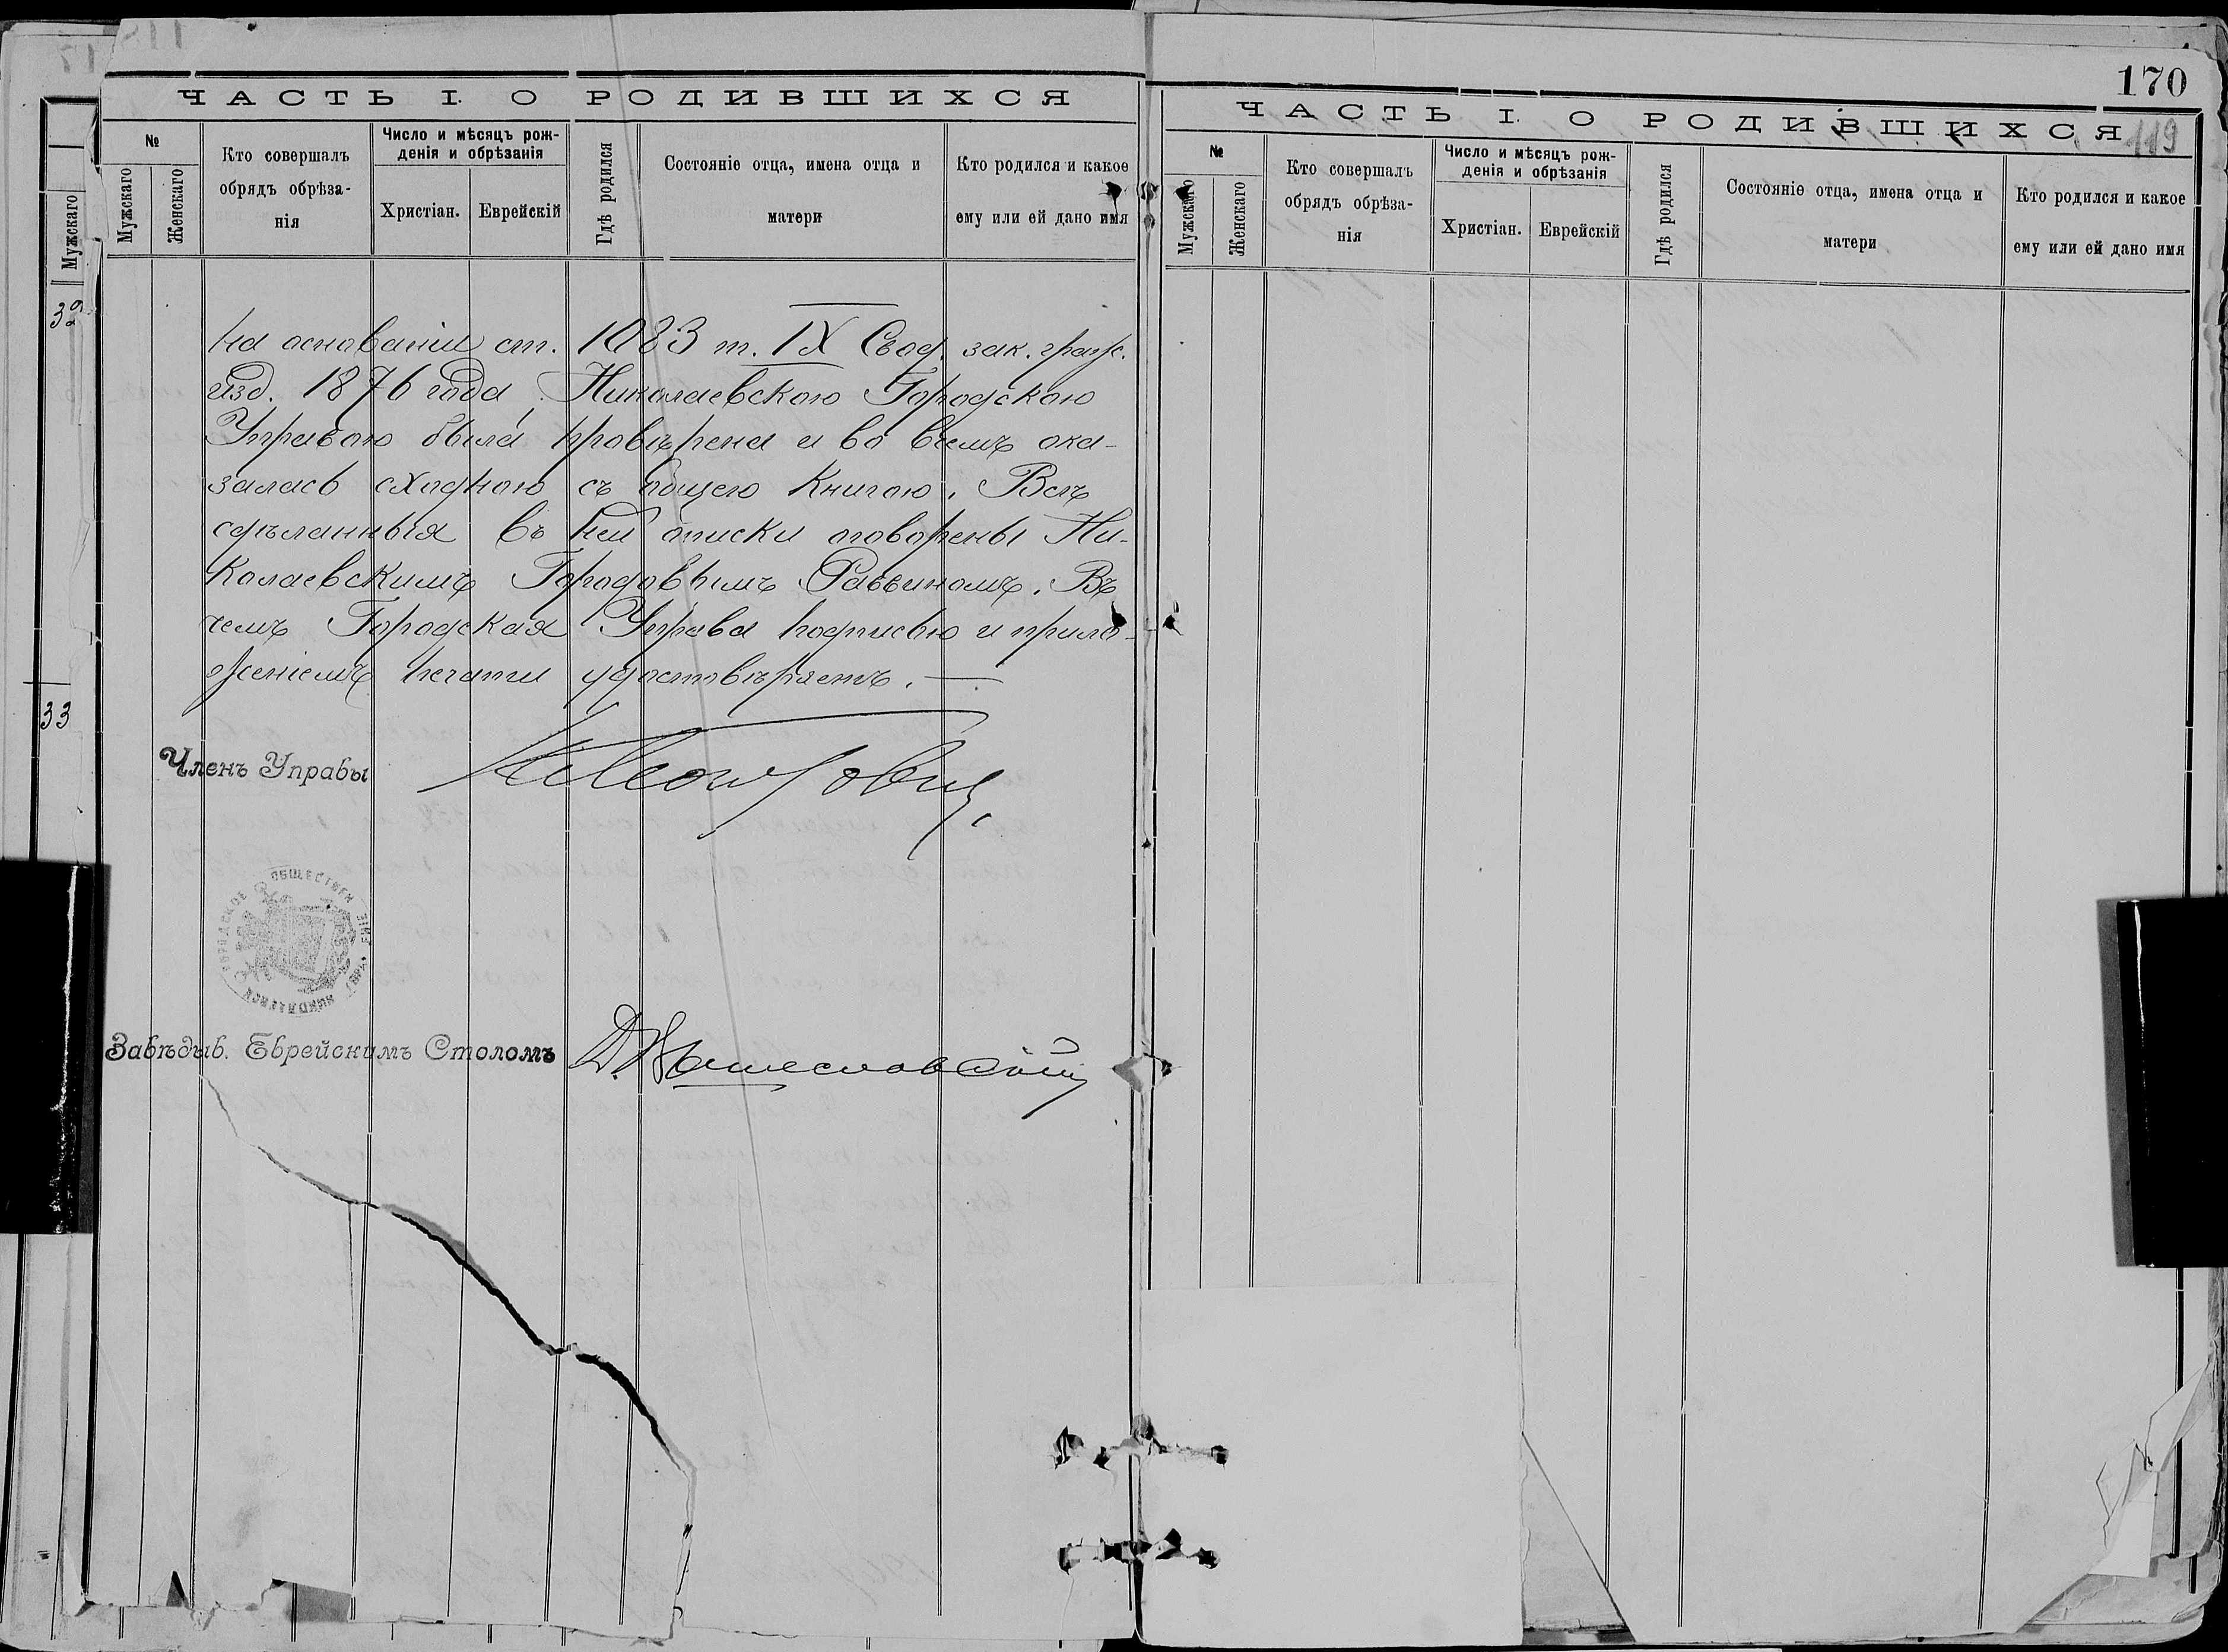 ЧАСТЬ I. О РОДИВШИХСЯ
№
Мужскаго
Женскаго
Кто совершалъ
обрядъ обрѣза-
нія
Число и мѣсяцъ рож-
денія и обрѣзанія
Христіан.
Еврейскій
Гдѣ родился
Состояніе отца, имена отца и
матери
Кто родился и какое
ему или ей дано имя
Мужскаго
32
33
на основаніи ст. 1083 т. IX Свод. зак. гражд.
изд. 1876 года Николаевскою Городскою
Управою была провѣрена и во всемъ ока-
залась сходною съ общею книгою. Всѣ
сдѣланныя въ ней описки оговорены Ни-
колаевскимъ Городовымъ Раввиномъ. Въ
чемъ Городская Управа подписью и прило-
женіемъ печати удостовѣряетъ. —
Членъ Управы
ГОРОДСКОЕ ОБЩЕСТВЕН
НИКОЛАЕВСК
Завѣдыв. Еврейскимъ Столомъ
170
119
ЧАСТЬ I. О РОДИВШИХСЯ
№
Мужскаго
Женскаго
Кто совершалъ
обрядъ обрѣза-
нія
Число и мѣсяцъ рож-
денія и обрѣзанія
Христіан.
Еврейскій
Гдѣ родился
Состояніе отца, имена отца и
матери
Кто родился и какое
ему или ей дано имя